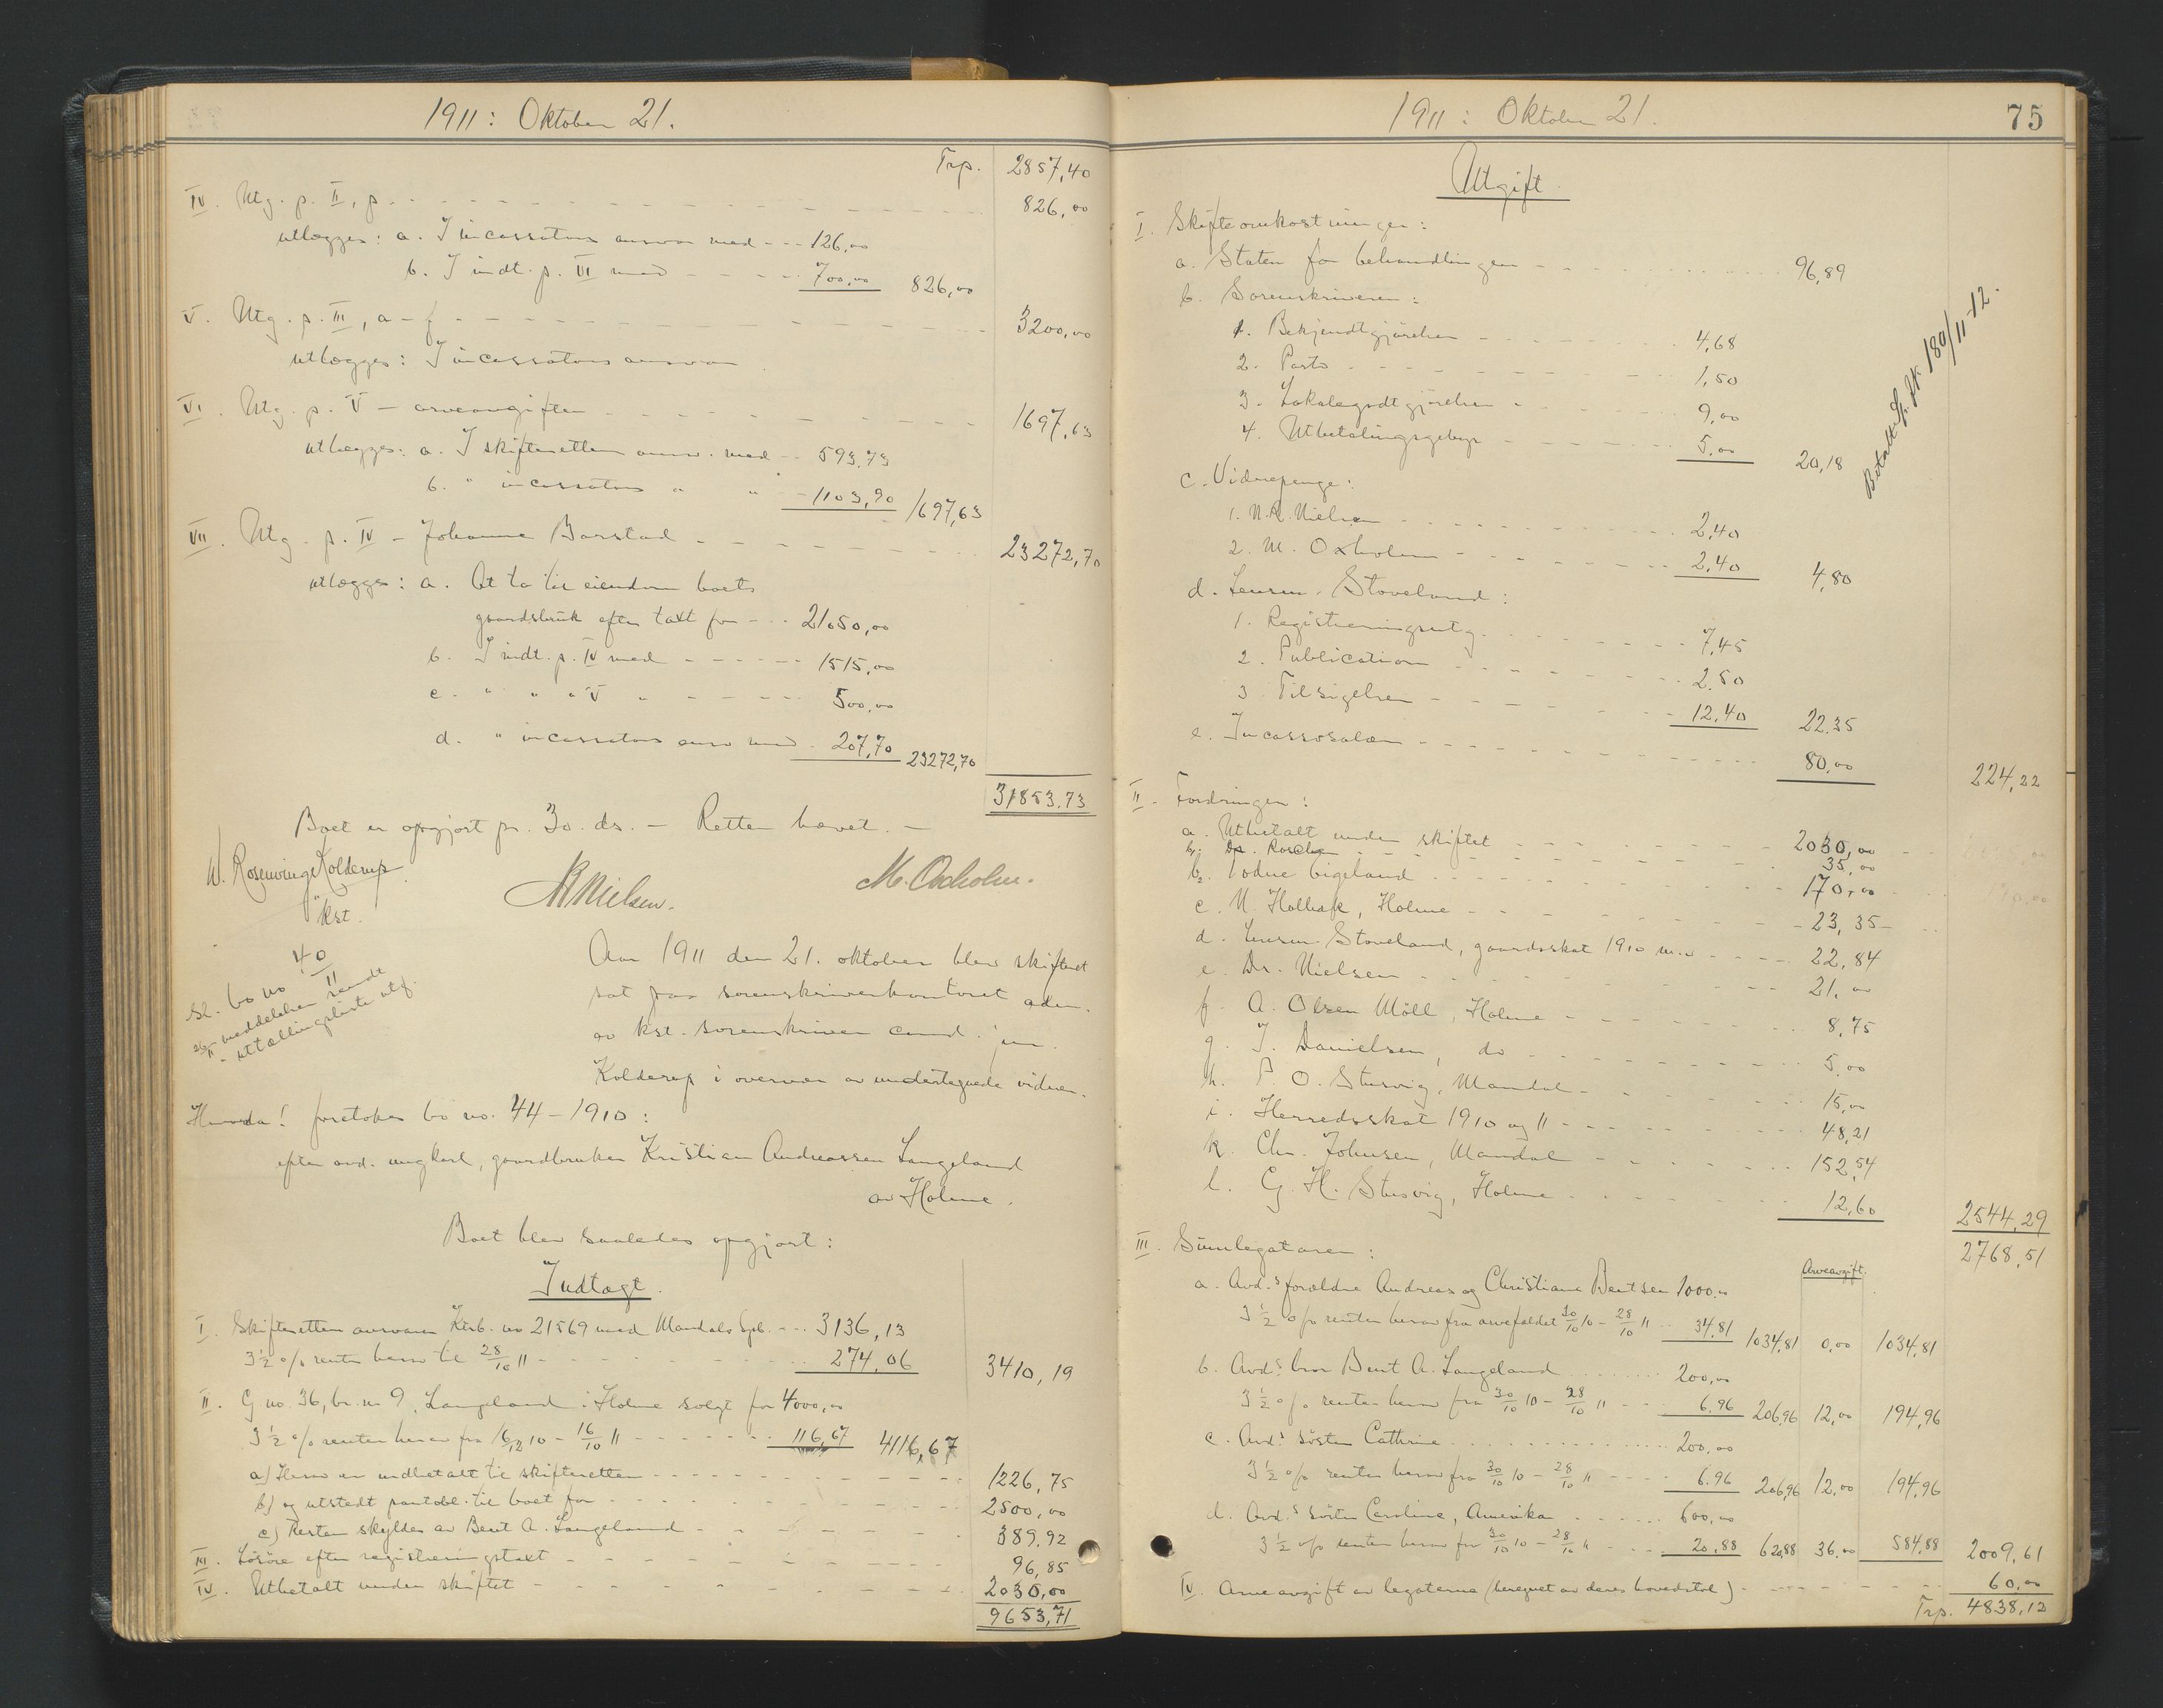 1911: Oktober 21.
Trp. 2857,40
IV. Utg. p. II, p 826,00
utlægges: a. I incassators ansvar med 126,00
b. I indt. p. VI med 700,00 826,00
V. Utg. p. III, a-f 3200,00
utlægges: I incassators ansvar
VI. Utg. p. V - arveavgiften 1697,63
utlægges: a. I skifterettens ansv. med 593,73
b. " incassators " " 1103,90 1697,63
VII. Utg. p. IV - Johanne Barstad 23272,70
utlægges: a. At ta til eiendom boets
gaardsbruk efter taxt for 21050,00
b. I indt. p. IV med 1515,00
c. " " " V " 500,00
d. " incassators ansv med 207,70 23272,70
31853,73
Boet er opgjort pr. 30. ds. - Retten hævet. -
W. Rosenvinge Kolderup
kst.
NR Nielsen.
M. Oxholm.
Sl. bo no 40/11
26/11 meddelelser sendt
" - uttællingsliste utf.
Aar 1911 den 21. oktober blev skifteret
sat paa sorenskriverkontoret adm.
av kst. sorenskriver cand. jur.
Kolderup i overvær av undertegnede vidner.
Hvorda! foretokes bo no. 44-1910:
efter avd. ungkarl, gaardbruker Kristian Andreassen Langeland
av Holme.
Boet blev saaledes opgjort:
Indtægt.
I. Skifterettens ansvaren Ktrb. no 21569 med Mandals Spb. 3136,13
3 1/2 o/o renter herav til 28/10 11 274,06 3410,19
II. G no. 36, br. no 9, Langeland i Holme solgt for 4000,00
3 1/2 o/o renter herav fra 16/12 10 - 16/10 11 116,67 4116,67
a) Herav er indbetalt til skifteretten 1226,75
b) og utstedt pantobl. til boet for 2500,00
c) Resten skyldes av Bent A. Langeland 389,92
III. Løsøre efter registreringstaxt 96,85
IV. Utbetalt under skiftet 2030,00
9653,71
1911: Oktober 21.
75
Utgift.
I. Skifteomkostninger:
a. Staten for behandlingen 96,89
b. Sorenskriveren:
1. Bekjendtgjørelser 4,68
2. Porto 1,50
3. Lokalegodtgjørelsen 9,00
4. Utbetalingsgebyr 5,00 20,18
Betalt Sp. Jk. 180/11-12.
c. Vidnepenge:
1. N.R. Nielsen 2,40
2. M. Oxholm 2,40 4,80
d. Lensm. Stoveland:
1. Registreringsutg. 7,45
2. Publication 2,50
3. Tilsigelser 12,40 22,35
e. Incassosalær 80,00 224,22
II. Fordringer:
a. Utbetalt under skiftet 2030,00
b1. Dr. Roscher 35,00
b2. Todne Eigeland 170,00
c. N. Holbæk, Holme 23,35
d. Lensm. Stoveland, gaardsskat 1910 m.v 22,84
e. Dr. Nielsen 21,00
f. A. Olsen Möll, Holme 8,75
g. J. Danielsen, do 5,00
h. P. O. Stusvig, Mandal 15,00
i. Herredsskat 1910 og 11 48,21
k. Chr. Johnsen, Mandal 152,54
l. G. H. Stusvig, Holme 12,60 2544,29
2768,51
III. Sumlegatarer:
Arveavgift.
a. Avd.s forældre Andreas og Christiane Bentsen 1000,00
3 1/2 o/o renter herav fra arvefaldet 30/10 10 - 28/10 11 34,81 1034,81 0,00 1034,81
b. Avd.s bror Bent A. Langeland 200,00
3 1/2 o/o renter herav fra 30/10 10 - 28/10 11 6,96 206,96 12,00 194,96
c. Avd.s søster Cathrine 200,00
3 1/2 o/o renter herav fra 30/10 10 - 28/10 11 6,96 206,96 12,00 194,96
d. Avd.s søster Caroline, Amerika 600,00
3 1/2 o/o renter herav fra 30/10 10 - 28/10 11 20,88 620,88 36,00 584,88 2009,61
IV. Arveavgift av legaterne (beregnet av deres hovedstol) 60,00
Trp. 4838,12